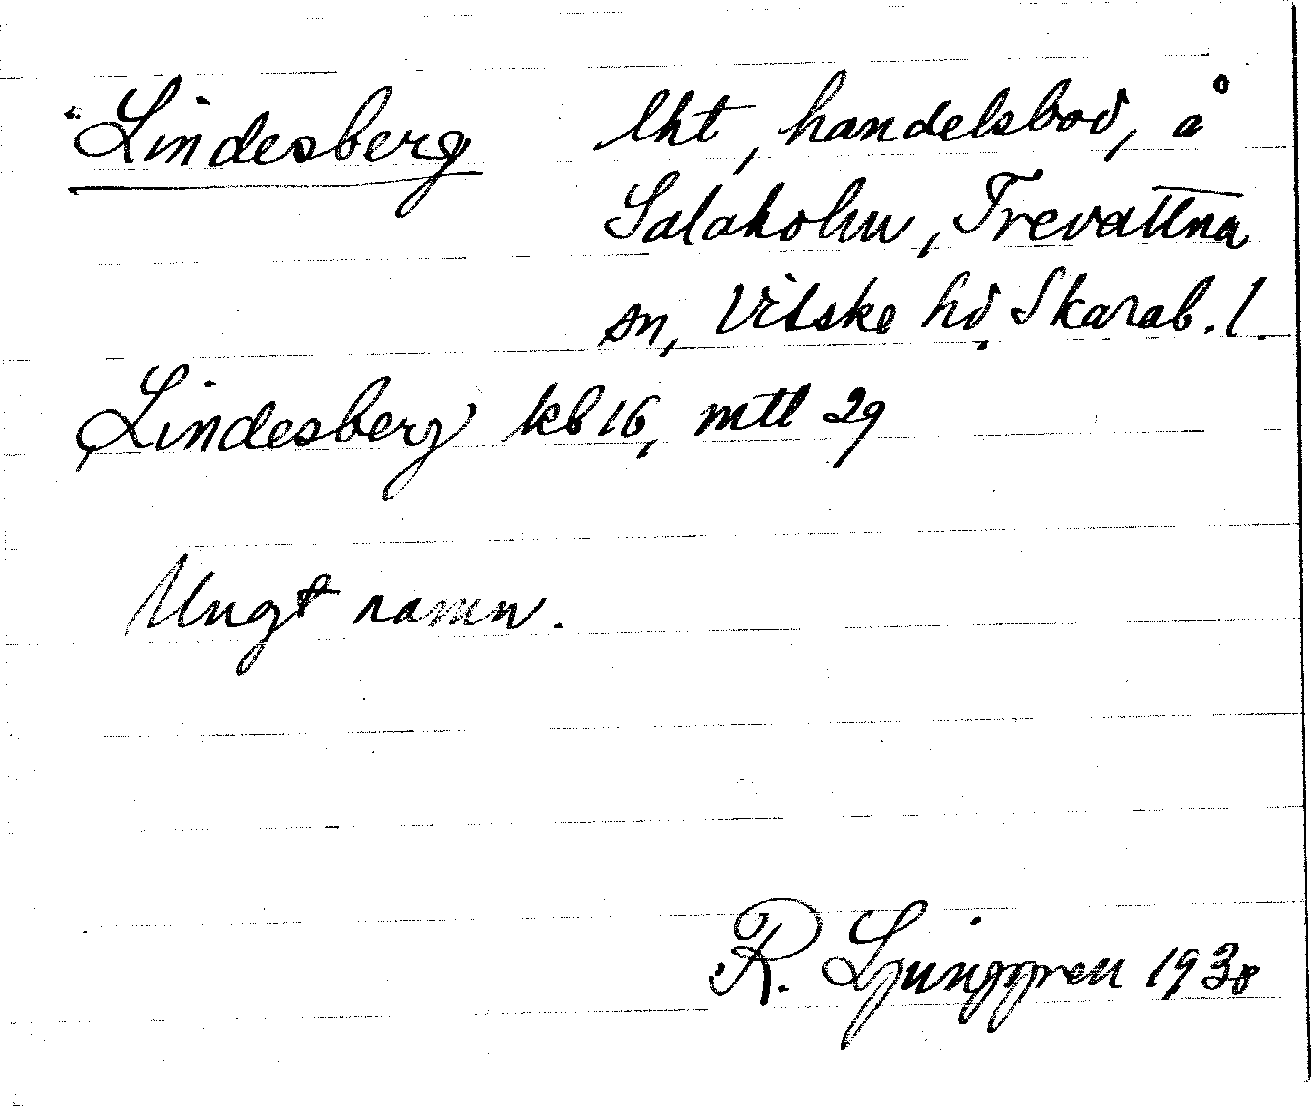 "Lindesberg lht, handelsbod, å
Salaholm, Trevattna
sn, Vilske hd, Skarab. l.
Lindesberg kb 16, mtl 29
Ungt namn.
R. Ljunggren 1930